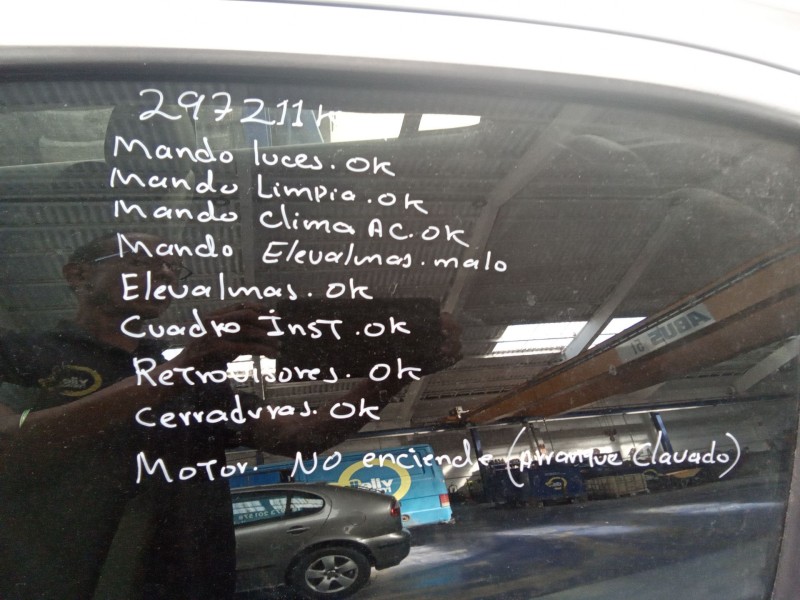 297211
Mando luces. OK
Mando Limpia. OK
Mando Clima AC. OK
Mando Elevalmas. malo
Elevalmas. OK
Cuadro InsT. OK
Retrovisores. OK
Cerraduras. OK
Motor. NO enciende (Arranque Clavado)
ABUS